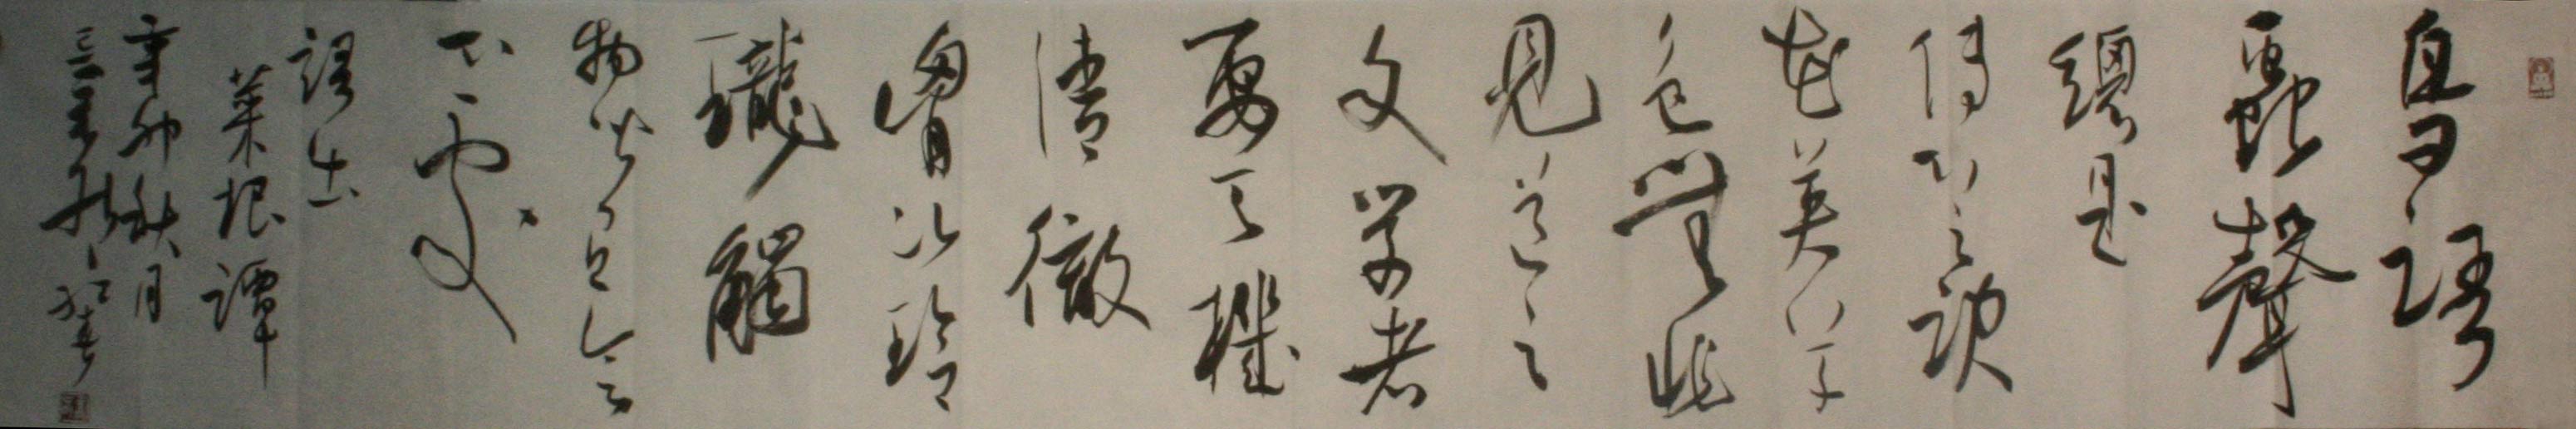 鳥語
蟲聲
總是
傳心之訣
花英草
色無非
見道之
文学者
要天機
清徹
胸次玲
瓏觸
物皆有會
心處
語出
菜根譚
辛卯秋月